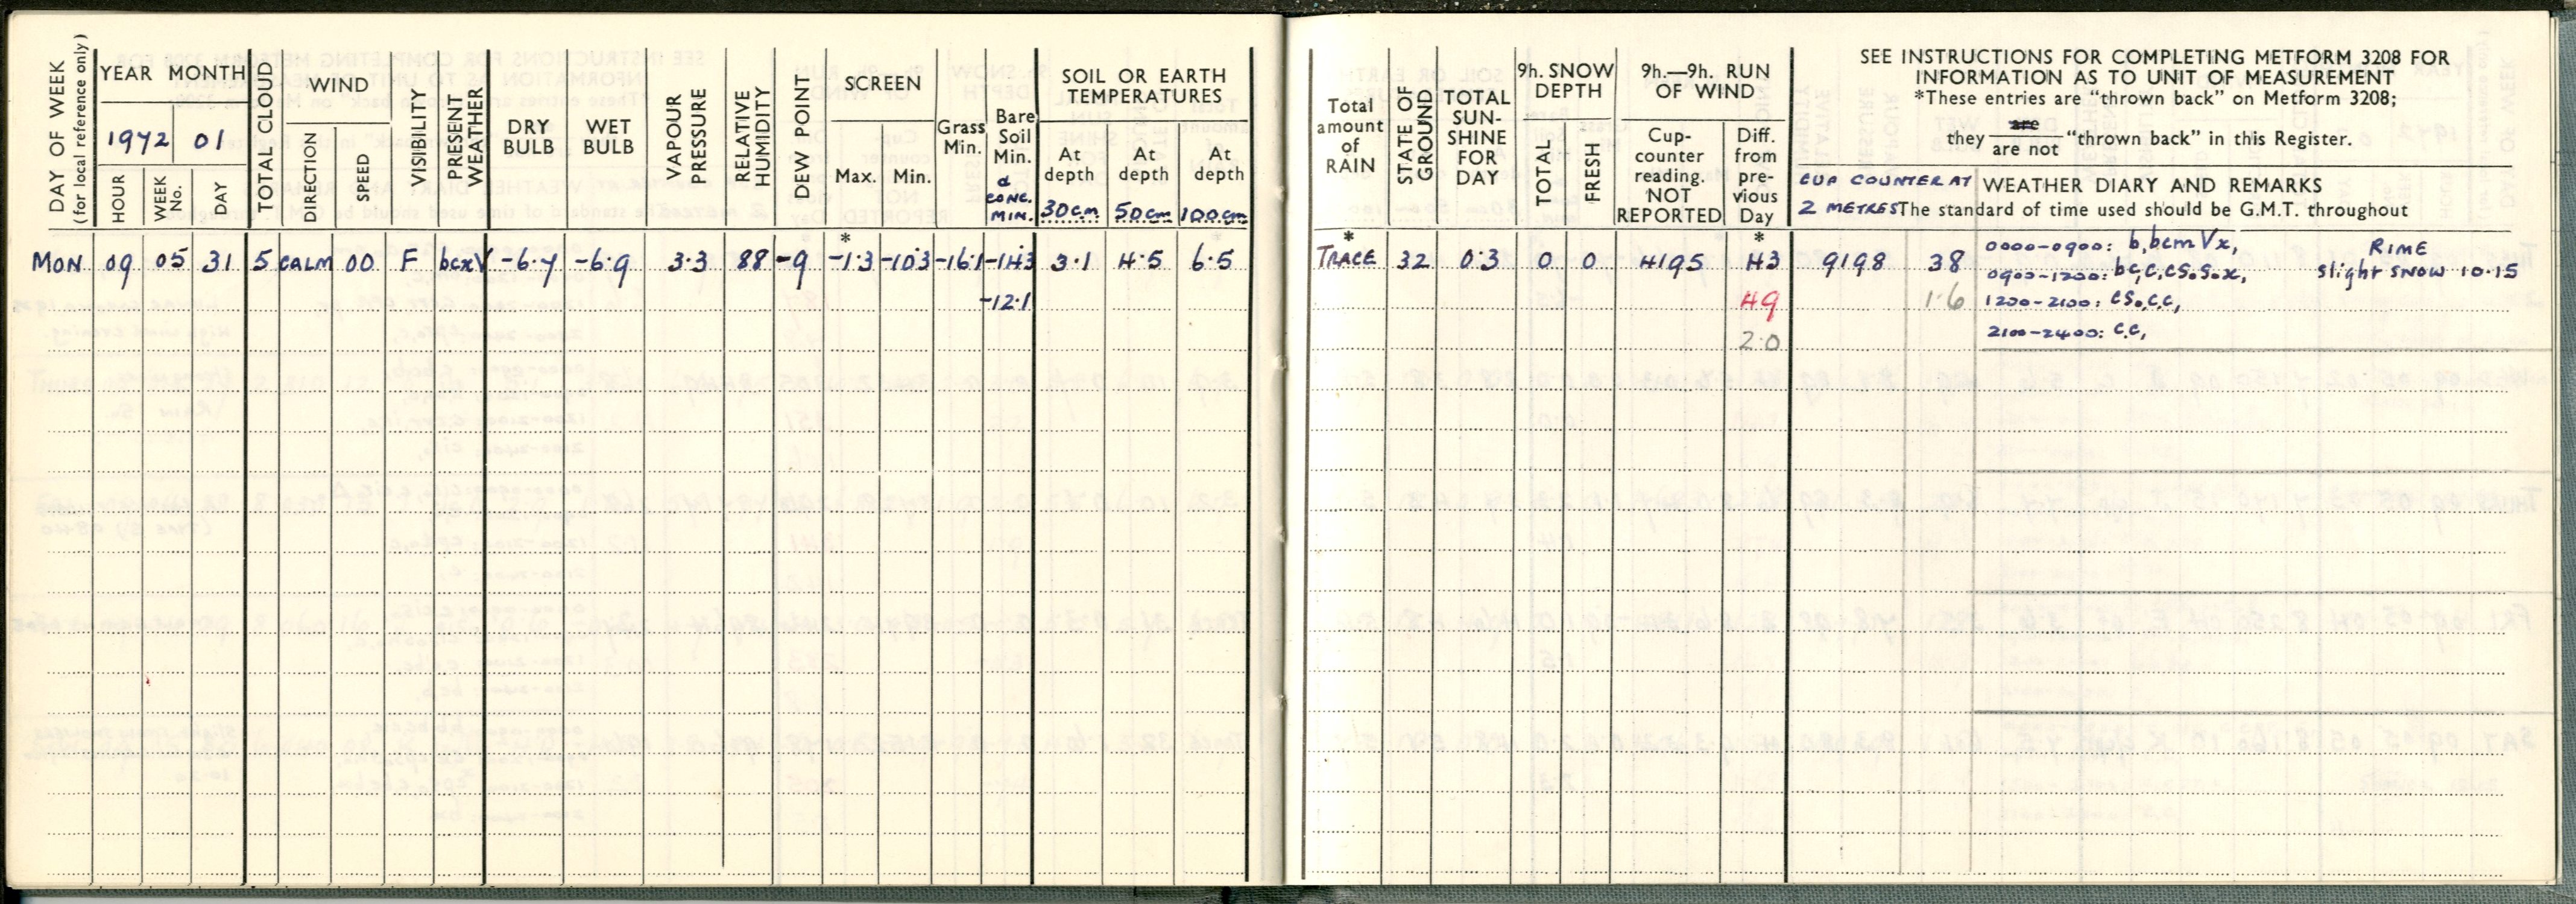 DAY OF WEEK
(for local reference only)
YEAR MONTH
1972 01
HOUR
WEEK No.
DAY
TOTAL CLOUD
WIND
DIRECTION
SPEED
VISIBILITY
PRESENT WEATHER
DRY BULB
WET BULB
VAPOUR PRESSURE
RELATIVE HUMIDITY
DEW POINT
SCREEN
Max.
Min.
Grass Min.
Bare Soil Min.
& CONC. MIN.
SOIL OR EARTH TEMPERATURES
At depth 30cm
At depth 50cm
At depth 100cm
Total amount of RAIN
STATE OF GROUND
TOTAL SUN-SHINE FOR DAY
9h. SNOW DEPTH
TOTAL
FRESH
9h.—9h. RUN OF WIND
Cup-counter reading. NOT REPORTED
Diff. from pre-vious Day
SEE INSTRUCTIONS FOR COMPLETING METFORM 3208 FOR
INFORMATION AS TO UNIT OF MEASUREMENT
*These entries are "thrown back" on Metform 3208;
they are / are not "thrown back" in this Register.
CUP COUNTER AT
2 METRES
WEATHER DIARY AND REMARKS
The standard of time used should be G.M.T. throughout
* * *
MON 09 05 31 5 CALM 00 F bcxV -6.7 -6.9 3.3 88 -9 -1.3 -10.3 -16.1 -14.3 3.1 4.5 6.5 TRACE 32 0.3 0 0 4195 43 9198 38
-12.1 49 1.6
2.0
0000-0900: b,bcmVx, RIME
0900-1200: bc,c,cs.s.x, slight SNOW 10.15
1200-2100: cs.c,c,
2100-2400: c.c,